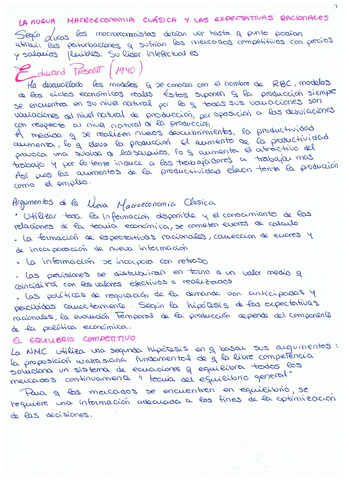 LA NUEVA MACROECONOMIA CLÁSICA Y LAS EXPECTATIVAS RACIONALES
Según Lucas los macroeconomistas debían ver hasta q punto podían
utilizar las perturbaciones q sufrían los mercados competitivos con precios
y salarios flexibles. Su líder intelectual es
Eduard Prescott (1940)
Ha desarrollado los modelos q se conocen con el nombre de RBC, modelos
de los ciclos económicos reales. Estos suponen q la producción siempre
se encuentra en su nivel natural por lo q todas sus variaciones son
variaciones del nivel natural de producción, por oposición a las desviaciones
con respecto al nivel natural de la producción.
A medida q se realizan nuevos descubrimientos, la productividad
aumenta, lo q eleva la producción. El aumento de la productividad
provoca una subida de los salarios, lo q aumenta el atractivo del
trabajo y por lo tanto induce a los trabajadores a trabajar más
Así pues los aumentos de la productividad elevan tanto la producción
como el empleo.
Argumentos de la Nueva Macroeconomía Clásica
• Utilizar toda la información disponible y el conocimiento de las
relaciones de la teoría económica, se cometen errores de cálculo
• La formación de expectativas racionales, corrección de errores y
de incorporación de nueva información
• La información se incorpora con retraso
• Las previsiones se distribuirán en torno a un valor medio q
coincidirá con los valores efectivos o realizados
• Las políticas de regulación de la demanda son anticipadas y
percibidas correctamente. Según la hipótesis de las expectativas
racionales, la evolución temporal de la producción depende del componente
de la política económica.
EL EQUILIBRIO COMPETITIVO
La NMC utiliza una segunda hipótesis en q basar sus argumentos:
la proposición walrasiana fundamental de q la libre competencia
soluciona un sistema de ecuaciones q equilibra todos los
mercados continuamente "teoría del equilibrio general"
Para q los mercados se encuentren en equilibrio, se
requiere una información adecuada a los fines de la optimización
de las decisiones.